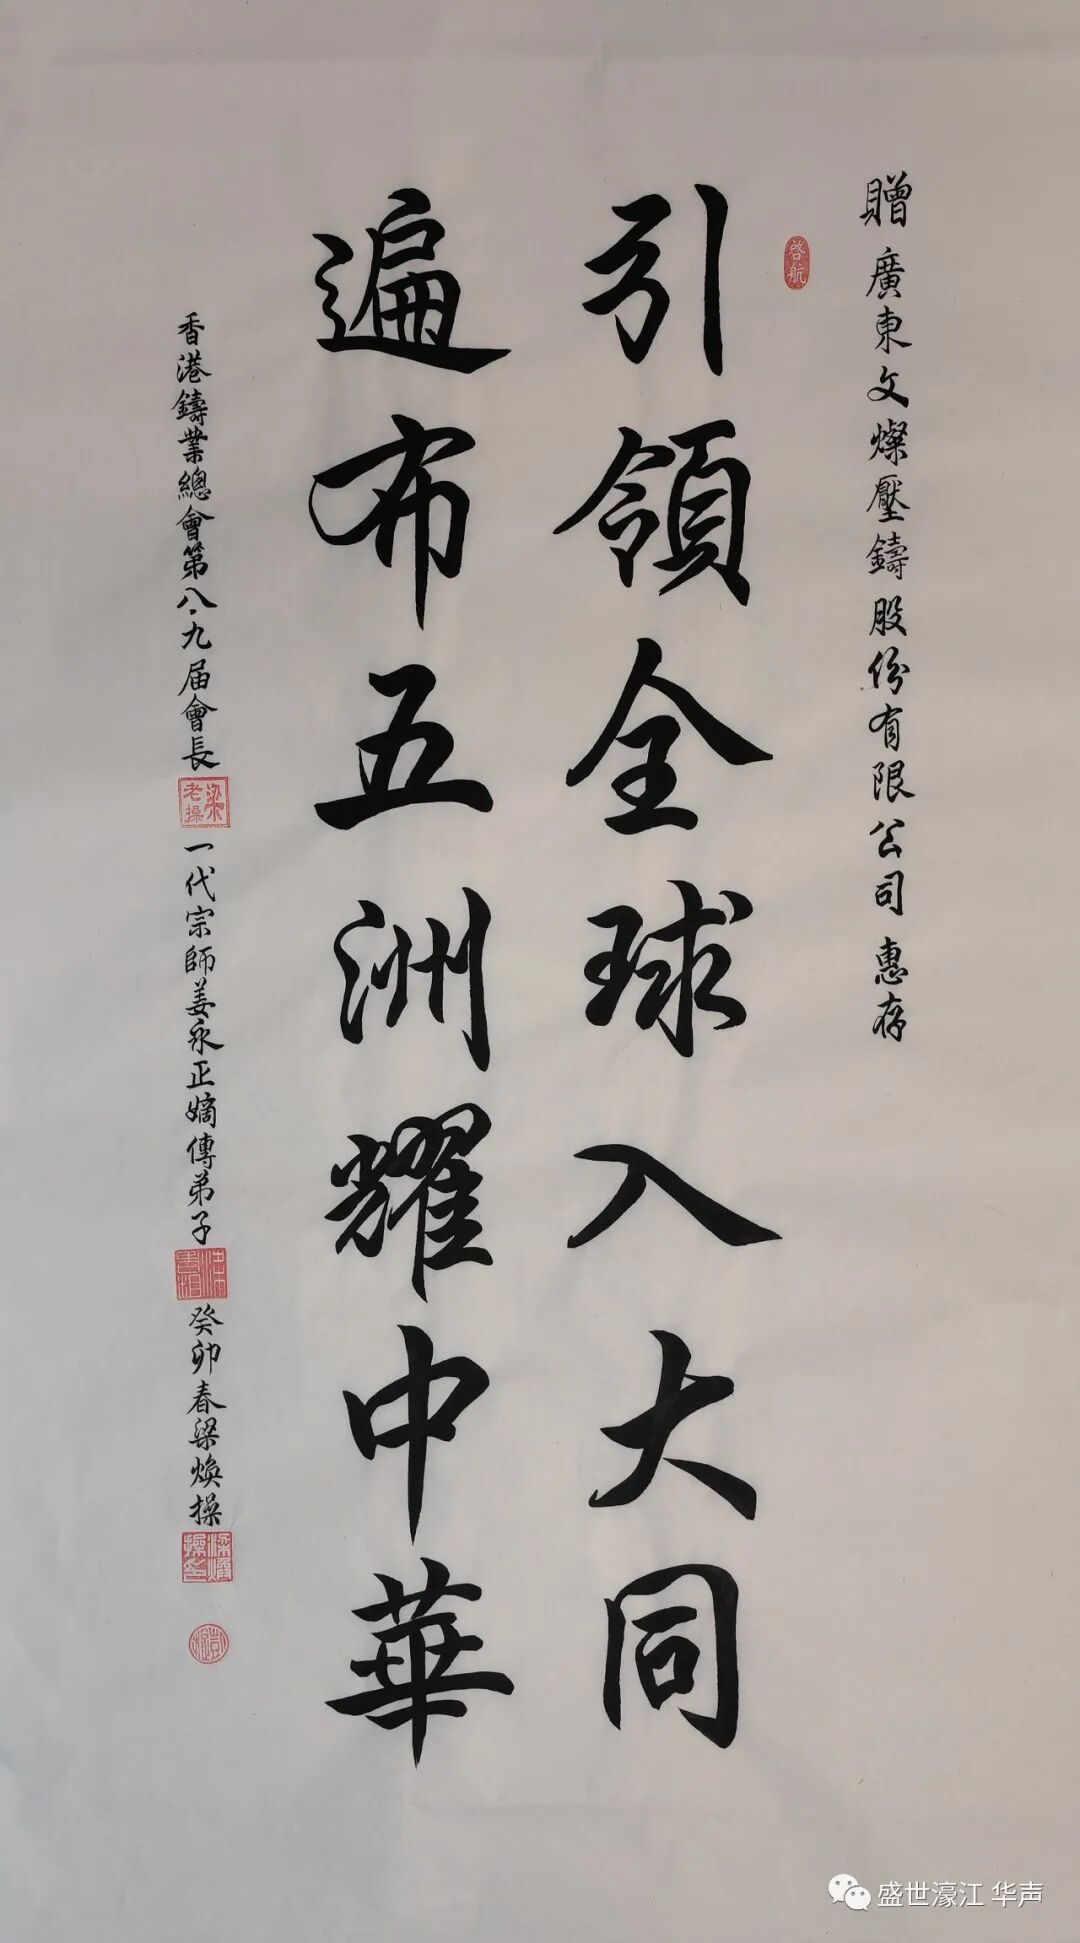 贈 廣東文燦壓鑄股份有限公司 惠存
啓航
引領全球入大同
遍布五洲耀中華
香港鑄業總會第八、九届會長
梁老操
一代宗師姜永正嫡傳弟子
癸卯春梁焕操
盛世濠江 华声